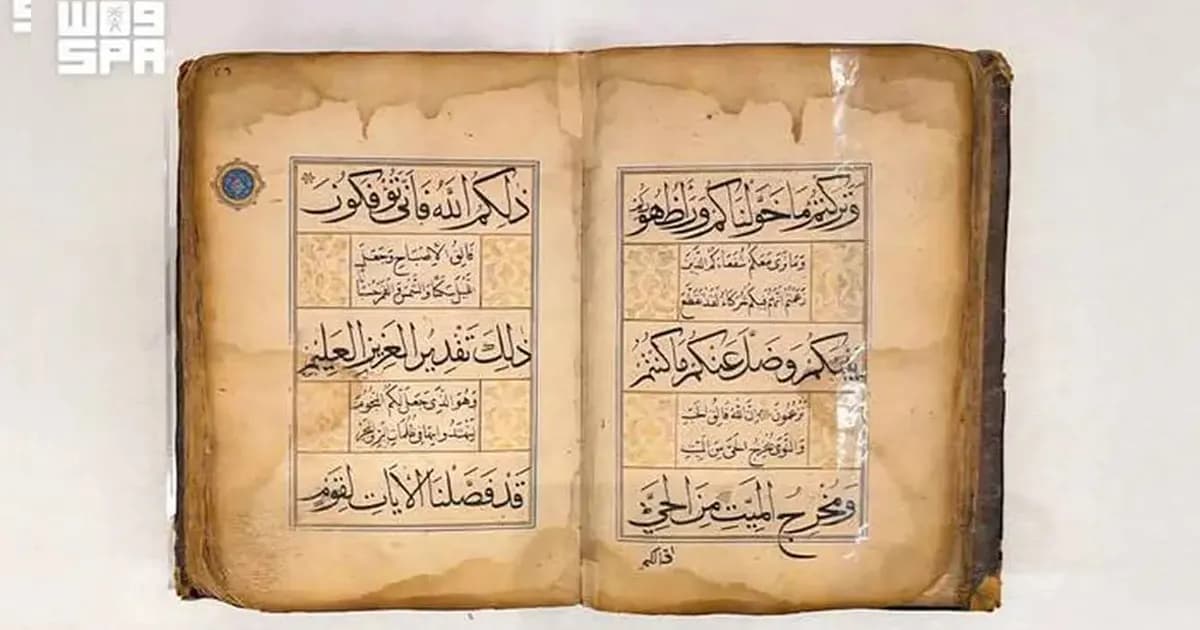 واس
SPA
وَتَرَكْتُمْ مَا خَوَّلْنَاكُمْ وَرَاءَ ظُهُورِكُمْ
وما نرى معكم شفعاءكم الذين
زعمتم انهم فيكم شركاء لقد تقطع
بينكم وَضَلَّ عَنكُم مَا كُنتُمْ
تزعمون ان الله فالق الحب
والنوى يخرج الحي من الميت
وَمُخْرِجُ الْمَيِّتِ مِنَ الْحَيِّ
ذٰلِكُمُ اللَّهُ فَاَنّٰى تُؤْفَكُونَ
فالق الاصباح وجعل
اليل سكنا والشمس والقمر حسبانا
ذٰلِكَ تَقْدِيرُ الْعَزِيزِ الْعَلِيمِ
وهو الذى جعل لكم النجوم
لتهتدوا بها فى ظلمات البر والبحر
قَدْ فَصَّلْنَا الْاٰيَاتِ لِقَوْمٍ